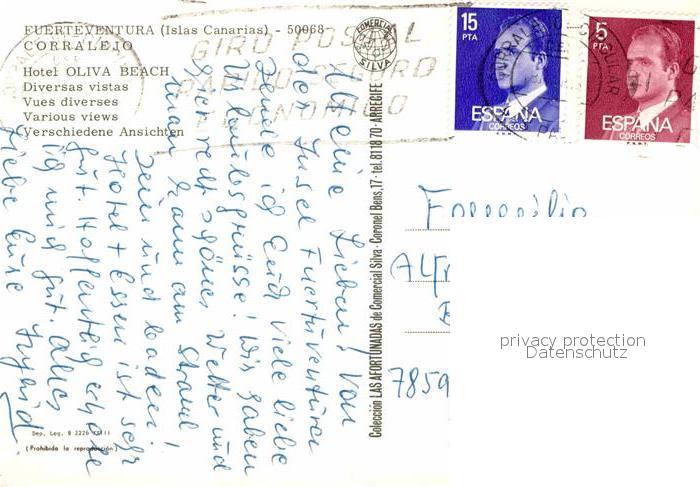 FUERTEVENTURA (Islas Canarias) - 50068
CORRALEJO
Hotel OLIVA BEACH
Diversas vistas
Vues diverses
Various views
Verschiedene Ansichten
GIRO POSTAL
RAPIDO SEGURO
ECONOMICO
COMERCIAL
SILVA
15
PTA
ESPAÑA
CORREOS
F.N.M.T.
5
PTA
ESPAÑA
CORREOS
F.N.M.T.
Ihr Lieben! Von
der Insel Fuerteventura
sende ich Euch viele liebe
Urlaubsgrüsse! Wir haben
schönes Wetter und
man kann am Strand
sein und baden!
Hotel + Essen ist sehr
gut. Hoffentlich
Ihr und gut. Alles
Liebe Eure Ingrid
Colección LAS AFORTUNADAS de Comercial Silva - Coronel Bens, 17 - tel. 81 18 70 - ARRECIFE
Familie
7859
privacy protection
Datenschutz
Dep. Leg. B 2226
(Prohibida la reproducción)